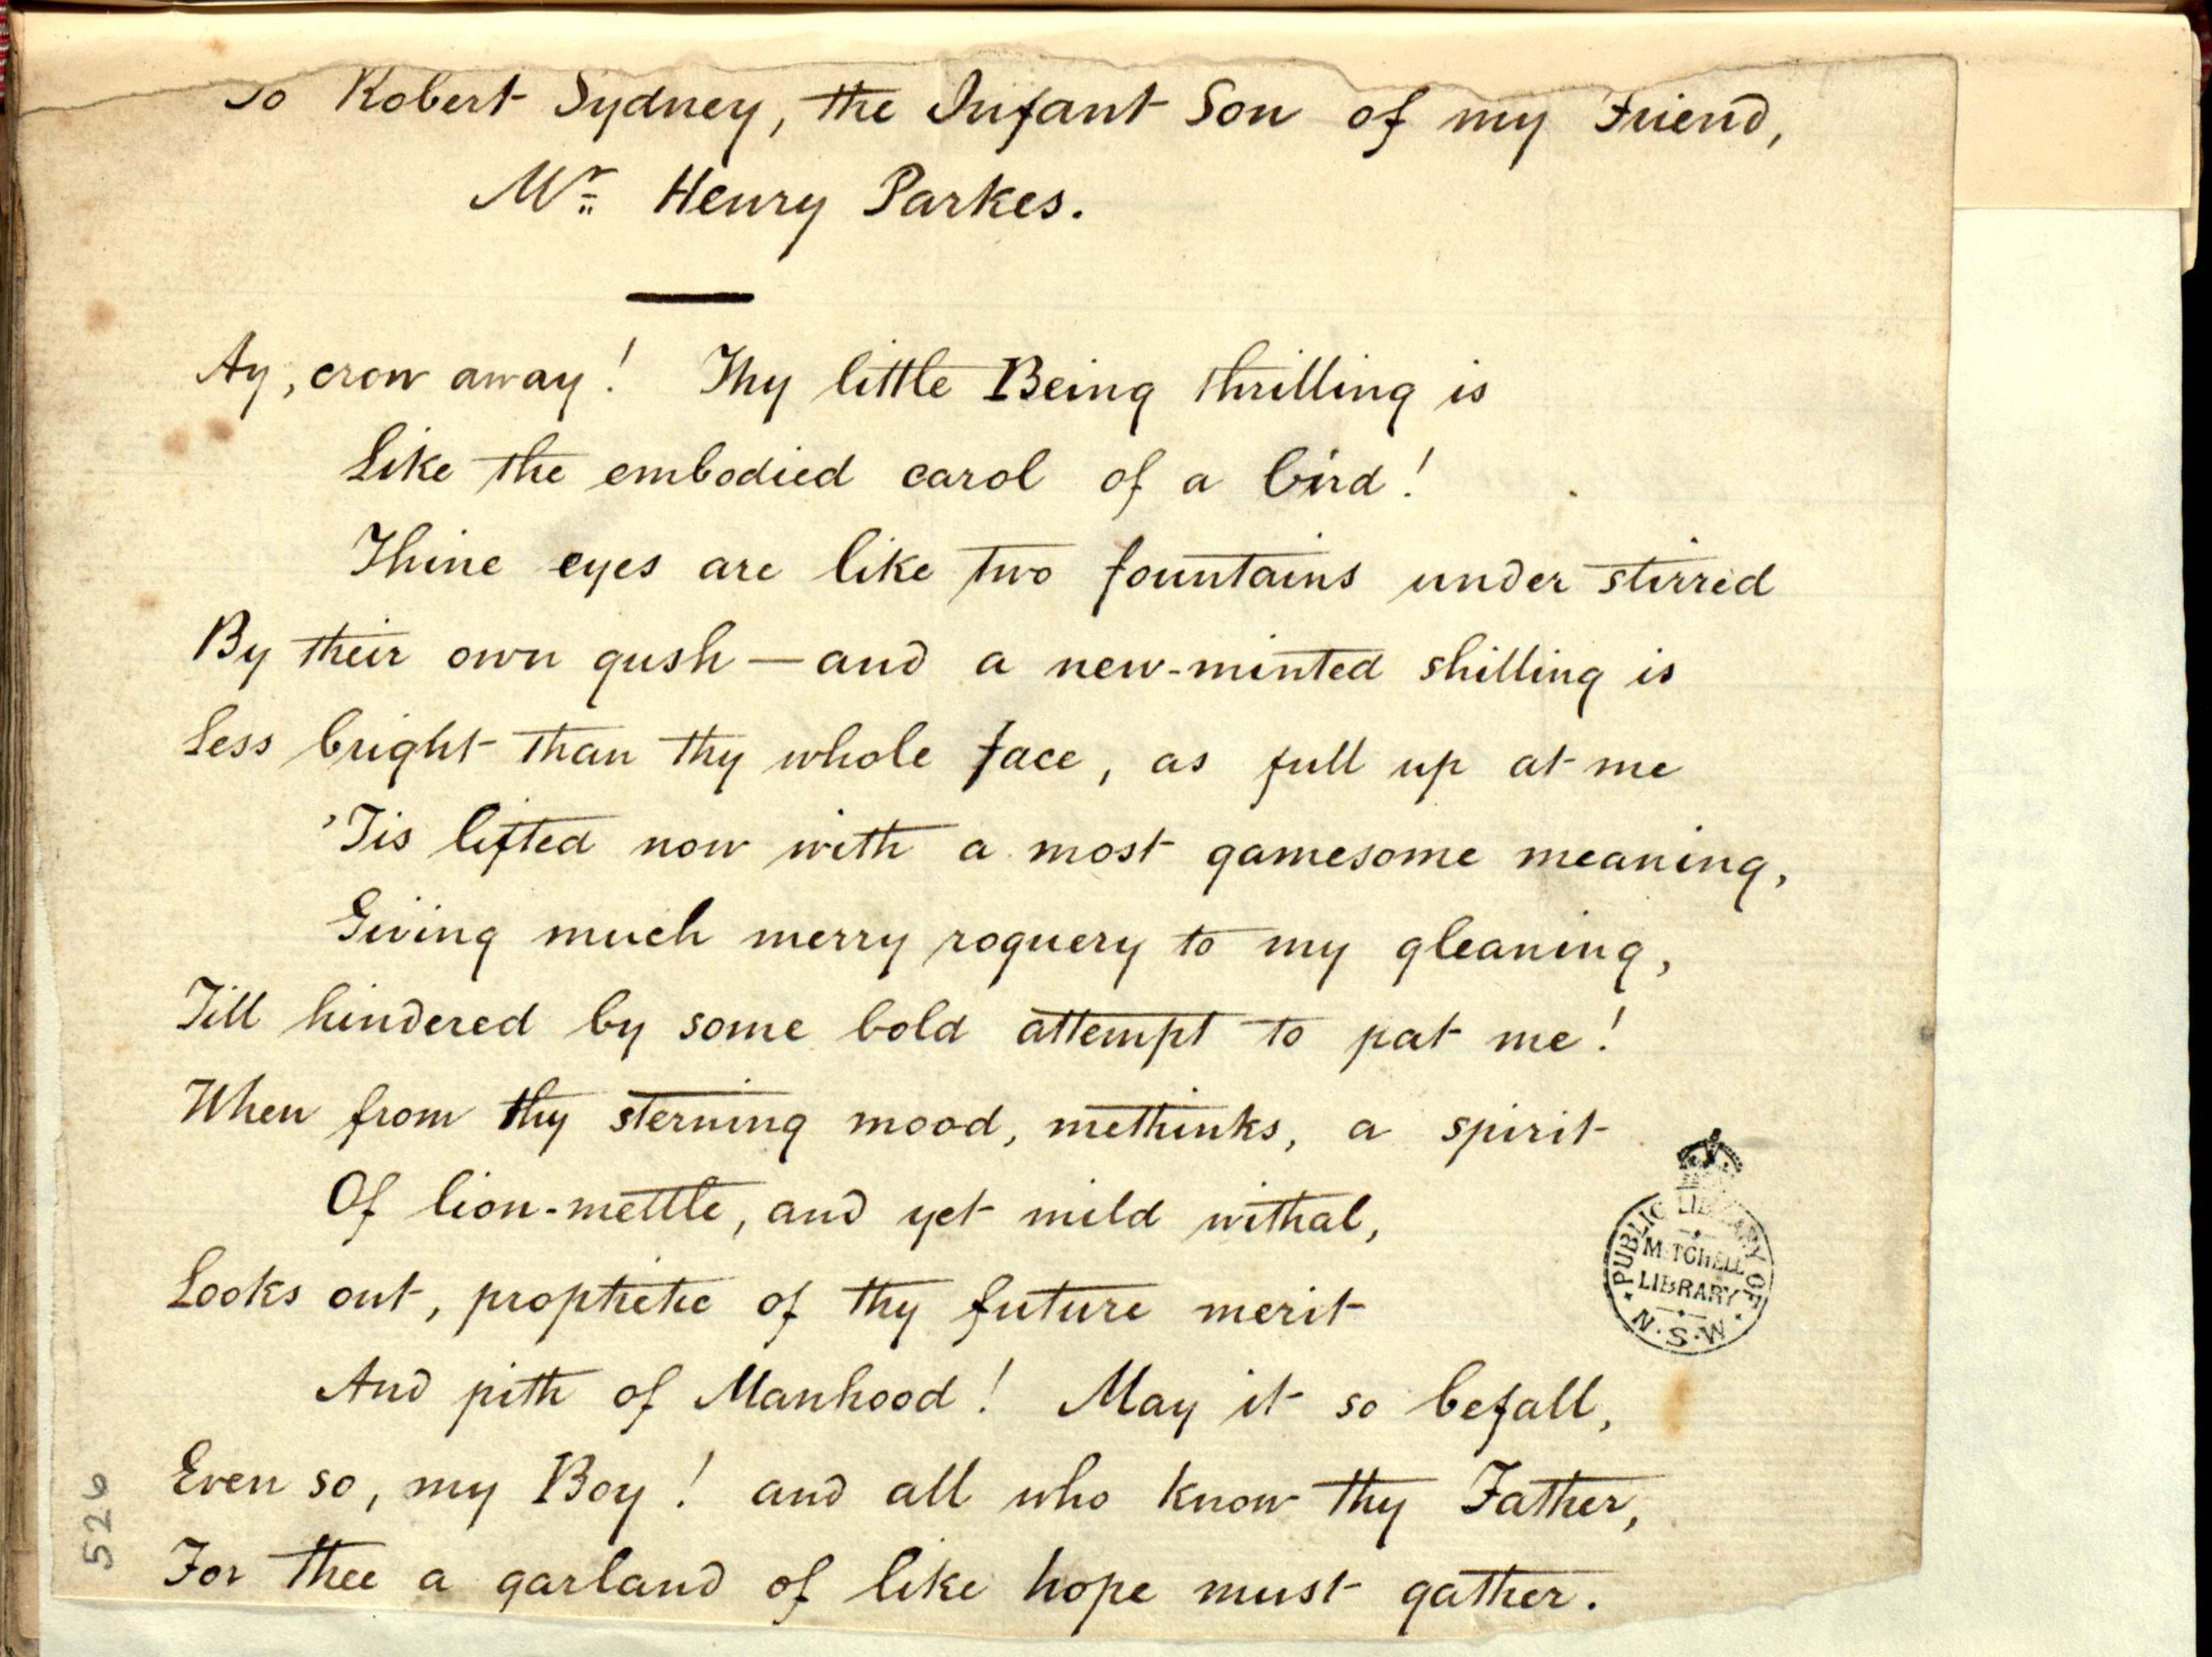 To Robert Sydney, the Infant Son of my Friend,
Mr. Henry Parkes.
Ay, crow away! Thy little Being thrilling is
Like the embodied carol of a bird!
Thine eyes are like two fountains under stirred
By their own gush — and a new-minted shilling is
Less bright than thy whole face, as full up at me
'Tis lifted now with a most gamesome meaning,
Giving much merry roguery to my gleaning,
Till hindered by some bold attempt to pat me!
When from thy sterning mood, methinks, a spirit
Of lion-mettle, and yet mild withal,
Looks out, prophetic of thy future merit
And pith of Manhood! May it so befall,
Even so, my Boy! and all who know thy Father,
For thee a garland of like hope must gather.
PUBLIC LIBRARY OF
MITCHELL
LIBRARY
N.S.W.
526